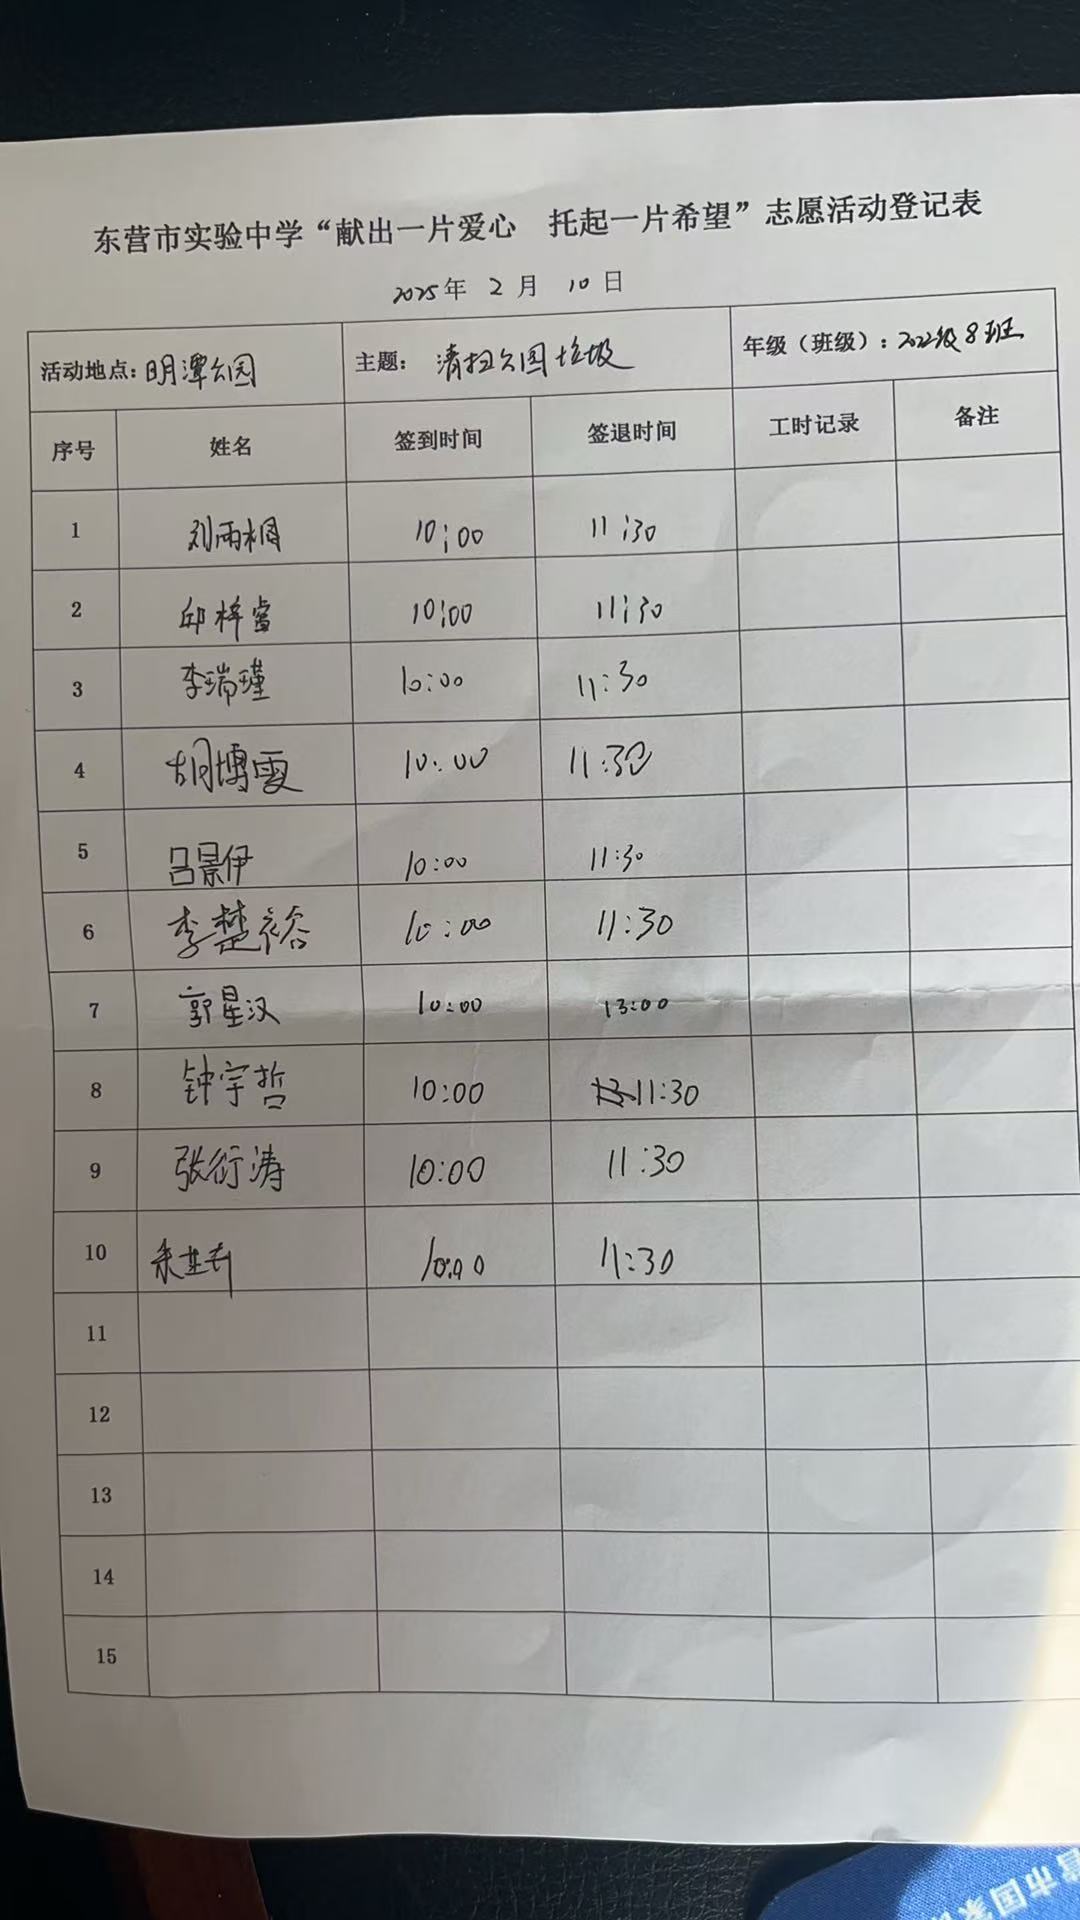 东营市实验中学“献出一片爱心 托起一片希望”志愿活动登记表
2025年 2 月 10 日
活动地点：明潭公园 主题： 清扫公园垃圾 年级（班级）：2022级8班
序号 姓名 签到时间 签退时间 工时记录 备注
1 刘雨桐 10:00 11:30
2 邱梓睿 10:00 11:30
3 李瑞瑾 10:00 11:30
4 胡博雯 10:00 11:30
5 吕景伊 10:00 11:30
6 李楚裕 10:00 11:30
7 郭星汉 10:00 13:00
8 钟宇哲 10:00 11:30
9 张衍涛 10:00 11:30
10 10:00 11:30
11
12
13
14
15
营市国家